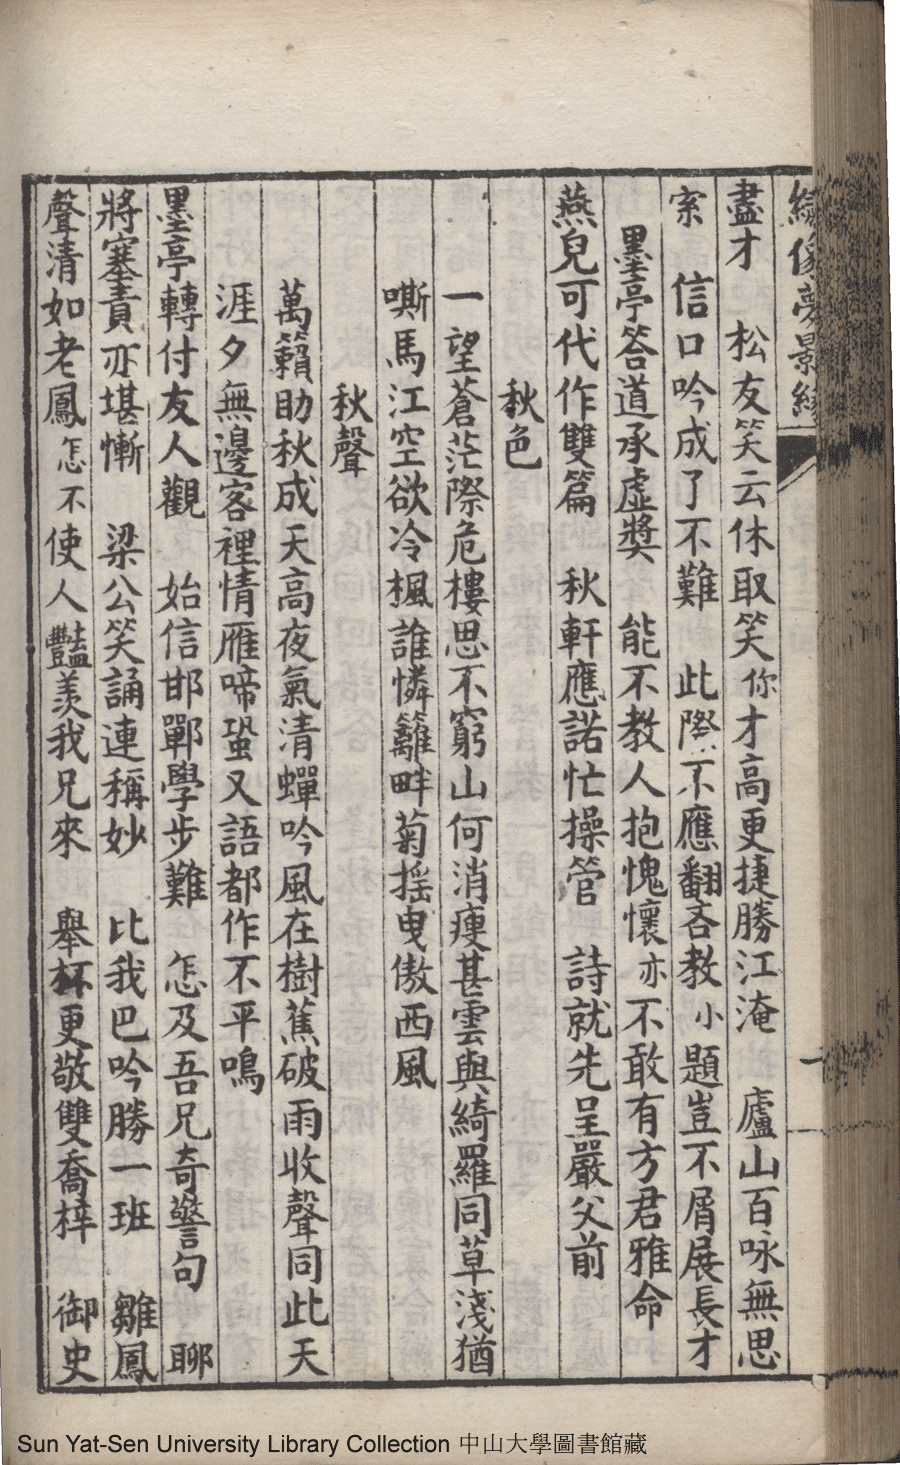 繡像夢影緣
一
盡才　松友笑云休取笑你才高更捷勝江淹　廬山百咏無思
索　信口吟成了不難　此際不應翻吝教小題豈不屑展長才
墨亭答道承虛獎　能不教人抱愧懷亦不敢有方君雅命
燕兒可代作雙篇　秋軒應諾忙操管　詩就先呈嚴父前
秋色
一望蒼茫際危樓思不窮山何消瘦甚雲與綺羅同草淺猶
嘶馬江空欲冷楓誰憐籬畔菊搖曳傲西風
秋聲
萬籟助秋成天高夜氣清蟬吟風在樹蕉破雨收聲同此天
涯夕無邊客裡情雁啼蛩又語都作不平鳴
墨亭轉付友人觀　始信邯鄲學步難　怎及吾兄奇警句　聊
將塞責亦堪慚　梁公笑誦連稱妙　比我巴吟勝一班　雛鳳
聲清如老鳳怎不使人豔羨我兄來　舉杯更敬雙喬梓　御史
Sun Yat-Sen University Library Collection 中山大學圖書館藏